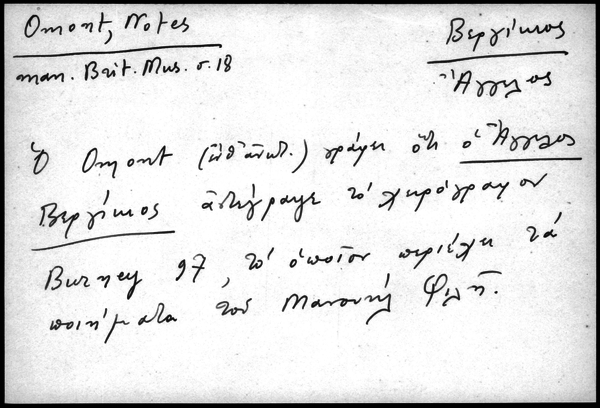 Omont, Notes
man. Brit. Mus. σ. 18
Βεργίκιος
Ἄγγελος
Ὁ Omont (ἔνθ' ἀνωτ.) γράφει ὅτι ὁ Ἄγγελος
Βεργίκιος ἀντέγραψε τὸ χειρόγραφον
Burney 97, τὸ ὁποῖον περιέχει τὰ
ποιήματα τοῦ Μανουὴλ Φιλῆ.